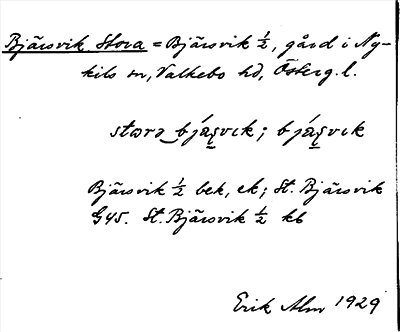 Bjärsvik Stora = Bjärsvik ½, gård i Ny-
kils sn, Valkebo hd, Österg. l.
starə bjáʂvɩk; bjáʂvɩk
Bjärsvik ½ bek, ek; St. Bjärsvik
G45. St. Bjärsvik ½ kb
Erik Alm 1929